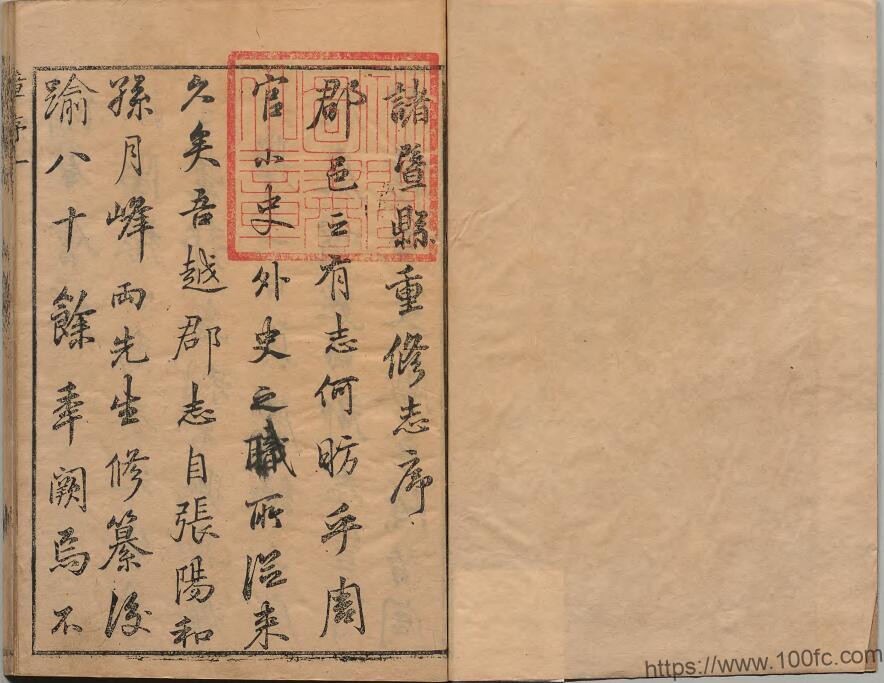 諸暨縣重修志序
郡邑之有志何昉乎周
官小史外史之職所從来
久矣吾越郡志自張陽和
孫月峰两先生修纂後
踰八十餘年闕焉不
章序一
https://www.100fc.com